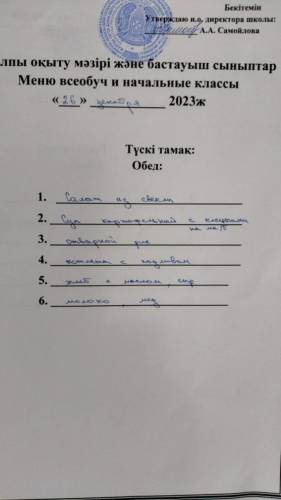 Бекітемін
Утверждаю и.о. директора школы:
А.А. Самойлова
лпы оқыту мәзірі және бастауыш сыныптар
Меню всеобуч и начальные классы
«26» декабря 2023ж
Түскі тамақ:
Обед:
1. Салат из свеклы
2. Суп картофельный с клецками
на м/б
3. отварной рис
4. котлета с подливом
5. хлеб с маслом, сыр
6. молоко, мед